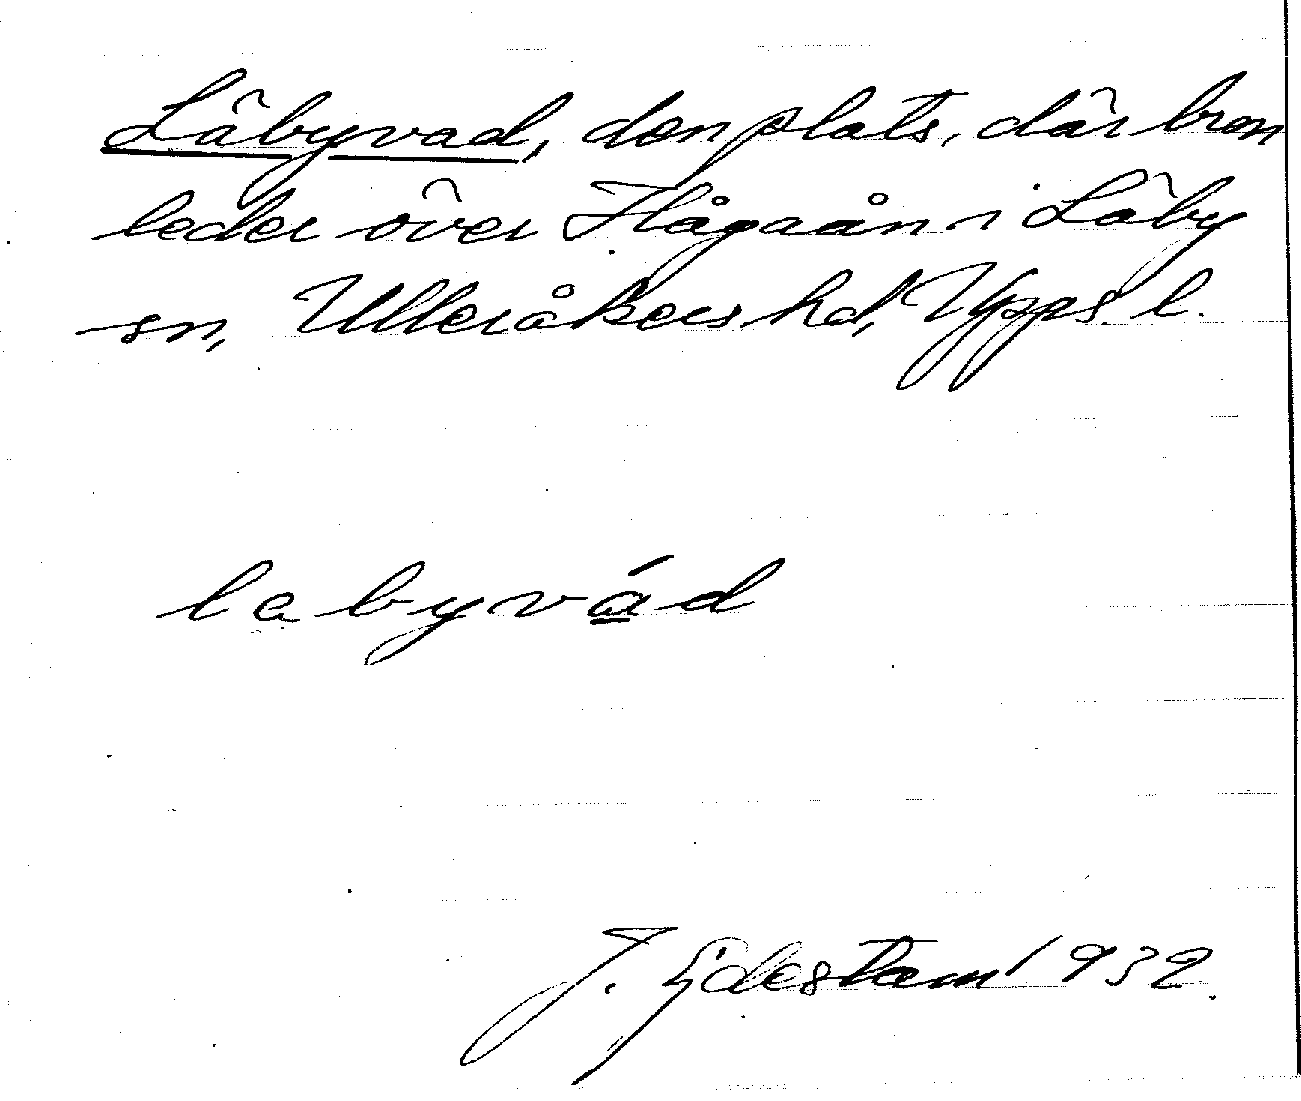 Läbyvad, den plats, där bron
leder över Hågaån i Läby
sn, Ulleråkers hd, Upps. l.
labyvád
J. Götlestam 1932.